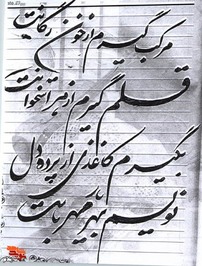 مرکب گیرم از خون رگانت
قلم گیرم از سر استخوانت
بگیرم کاغذی از پرده دل
نویسم بهر یار مهربانت